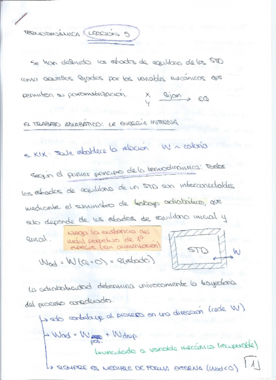 TERMODINÁMICA LECCIÓN 5
Se han definido los estados de equilibrio de los STD
como aquellos fijados por las variables mecánicas que
permiten su parametrización. X Y fijan EQ
EL TRABAJO ADIABÁTICO: LA ENERGÍA INTERNA
s XIX - Joule establece la relación W ~ caloría
según el primer principio de la termodinámica: Todos
los estados de equilibrio de un STD son interconectables
mediante el suministro de trabajo adiabático, que
sólo depende de los estados de equilibrio inicial y
final.
Niega la existencia del
móvil perpetuo de 1ª
especie (sin alimentación)
STD
W
Wad = W(Q=0) = f(estado)
La adiabaticidad determina unívocamente la trayectoria
del proceso considerado.
sólo contribuye al proceso en una dirección (cede W)
Wad = W + Wdisip
(vinculado a variable mecánica recuperable)
SIEMPRE ES MEDIBLE DE FORMA EXTERNA (Wad<0)
1